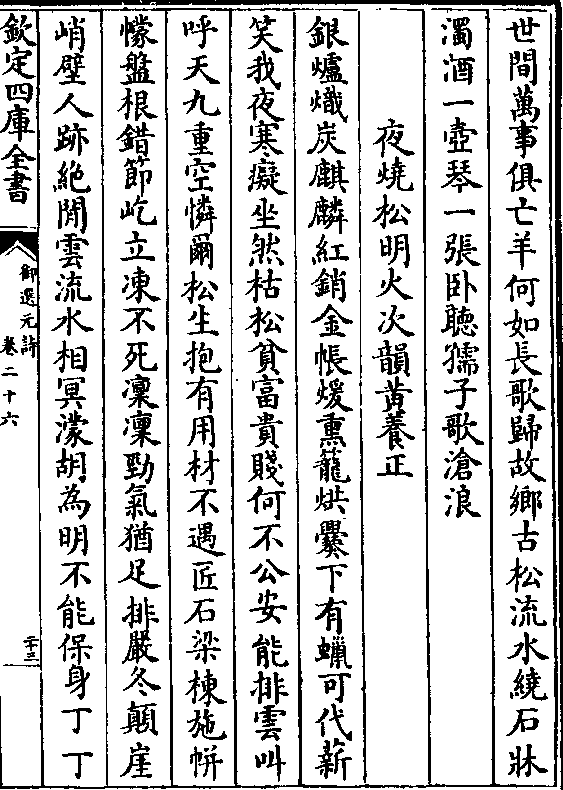 世間萬事俱亡羊何如長歌歸故鄉古松流水繞石牀
濁酒一壺琴一張卧聽孺子歌滄浪
夜燒松明火次韻黄養正
銀爐熾炭麒麟紅銷金帳煖熏籠烘爨下有蠟可代薪
笑我夜寒癡坐煞枯松貧富貴賤何不公安能排雲叫
呼天九重空憐爾松生抱有用材不遇匠石梁棟施帡
幪盤根錯節屹立凍不死凜凜勁氣猶足排嚴冬顛崖
峭壁人跡絶閒雲流水相冥濛胡為明不能保身丁丁
欽定四庫全書
御選元詩
卷二十六
二十三